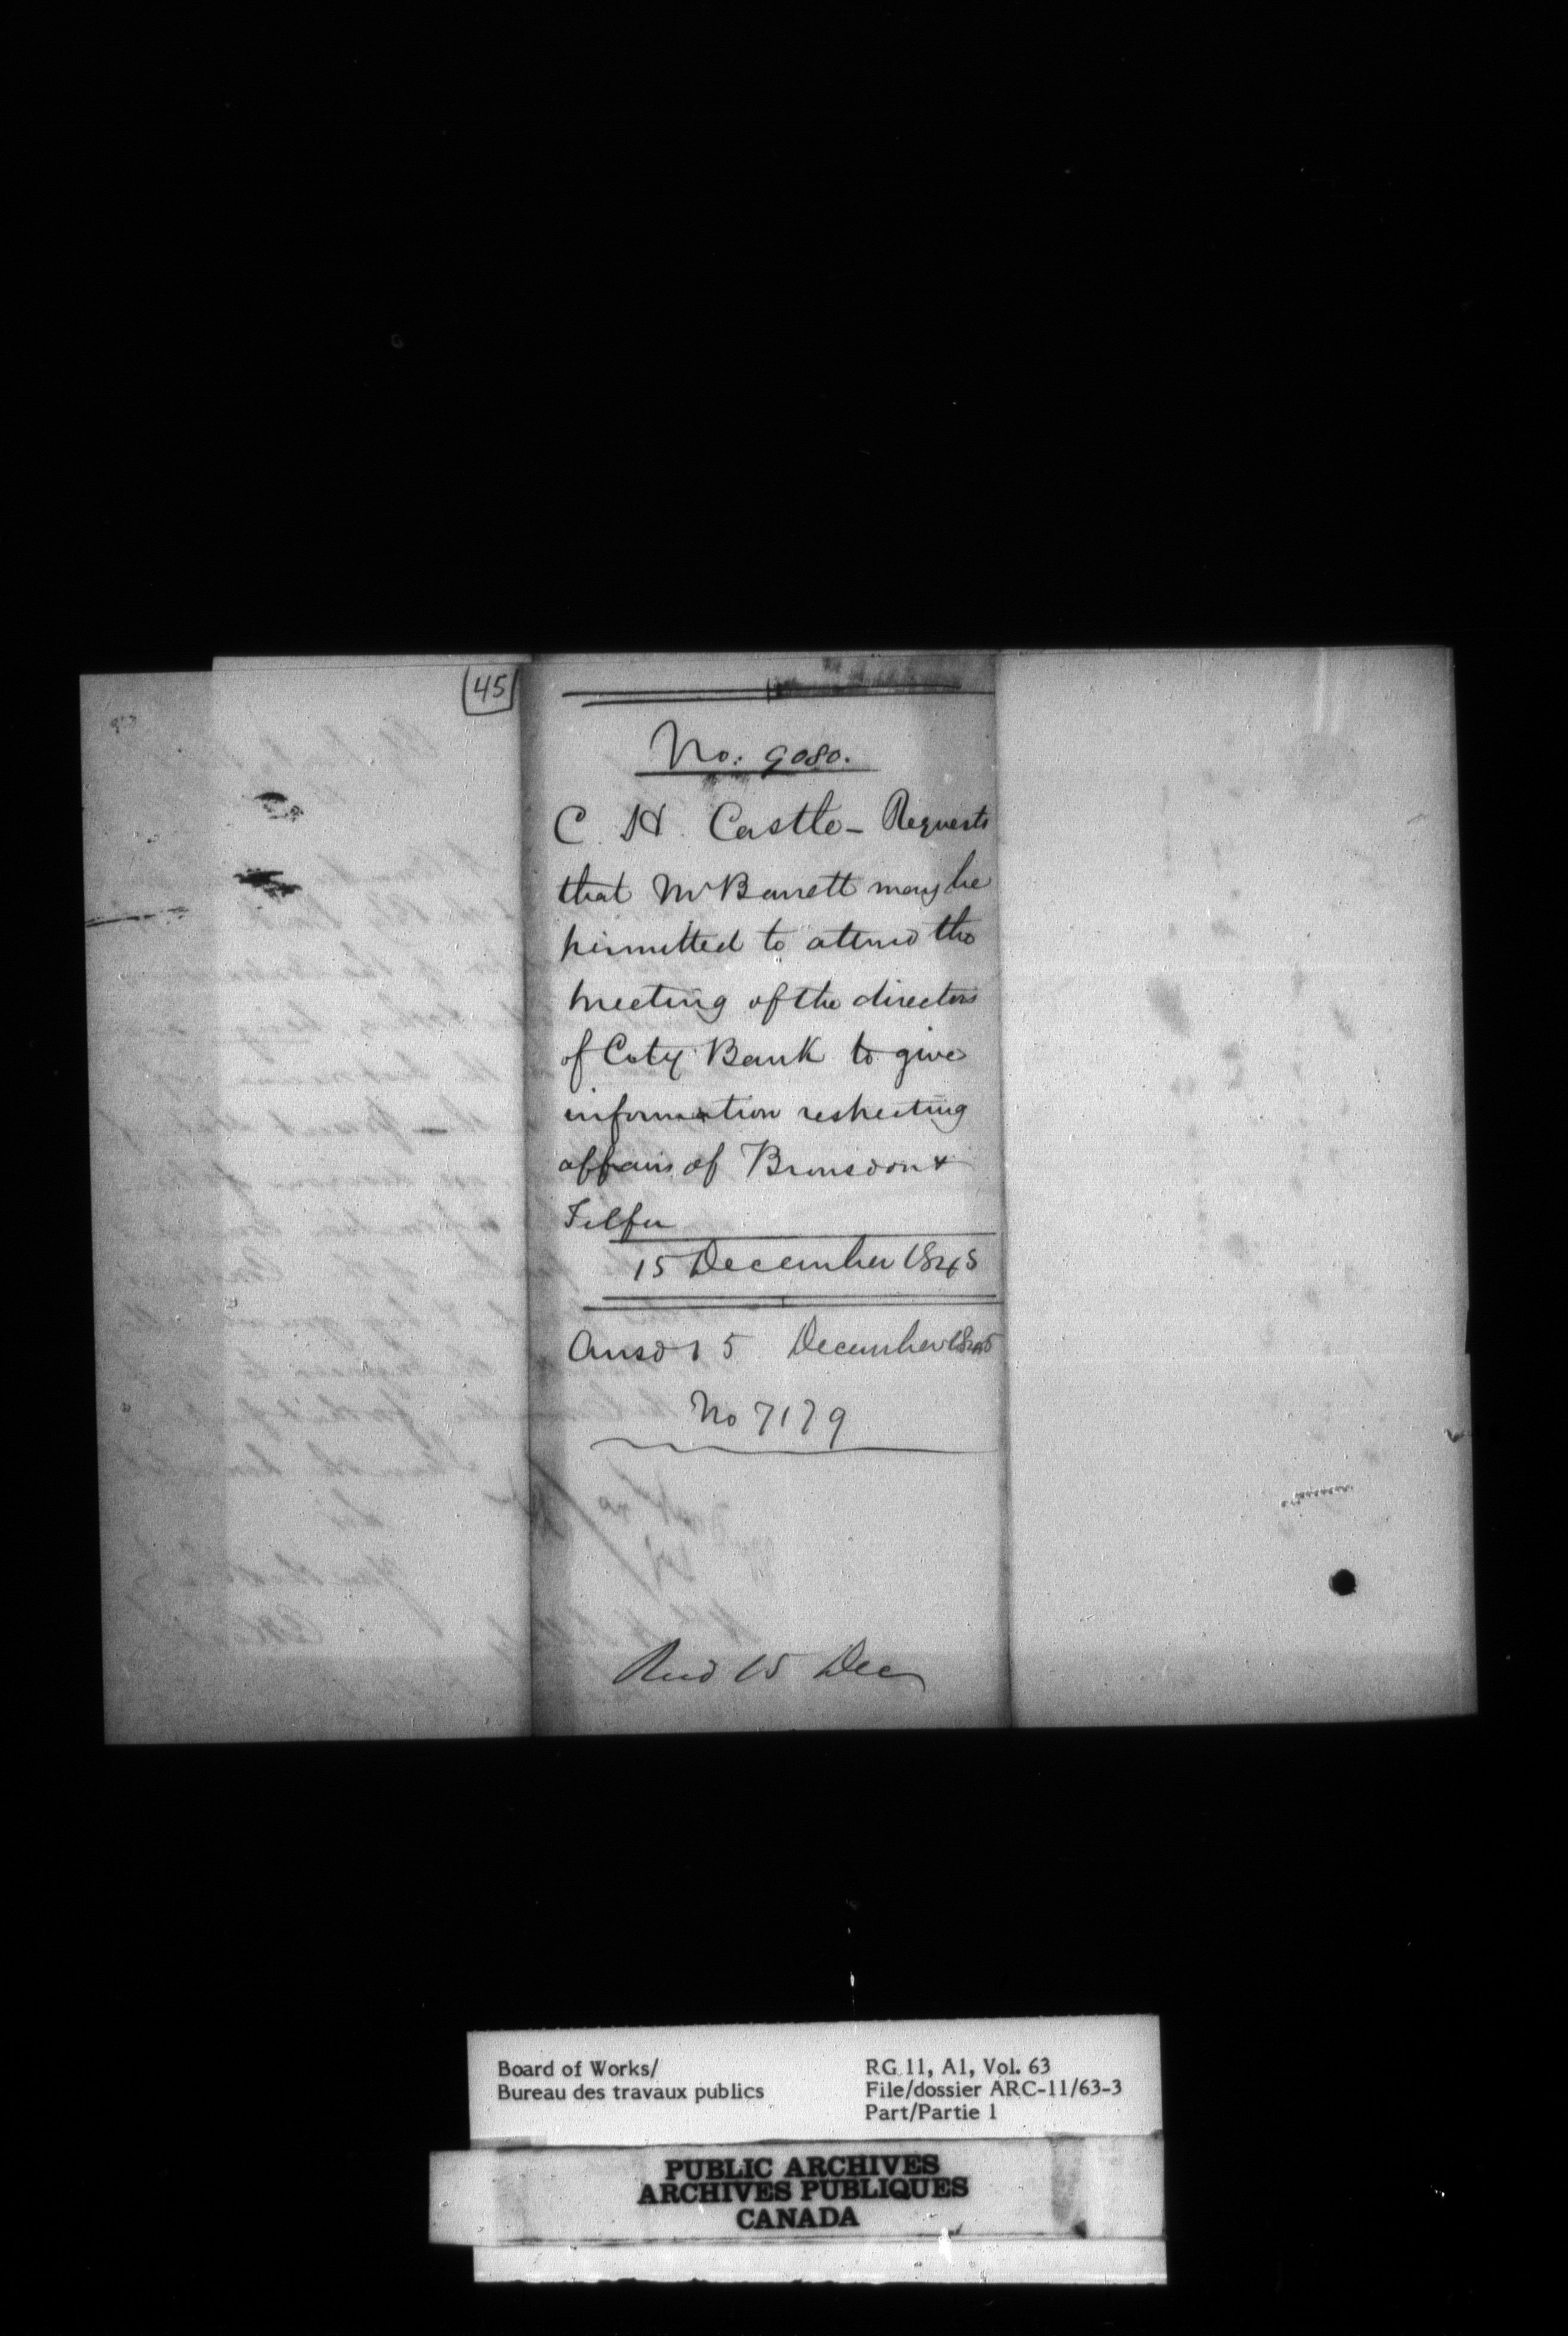 45
No: 9080.
C. H. Castle - Requests
that Mr Barrett may be
permitted to attend the
meeting of the directors
of City Bank to give
information respecting
affairs of Brunsdon &
15 December 1845
Ansd 15 December 1845
No 7179
Recd 15 Dec
Board of Works/
Bureau des travaux publics
RG 11, A1, Vol. 63
File/dossier ARC-11/63-3
Part/Partie 1
PUBLIC ARCHIVES
ARCHIVES PUBLIQUES
CANADA